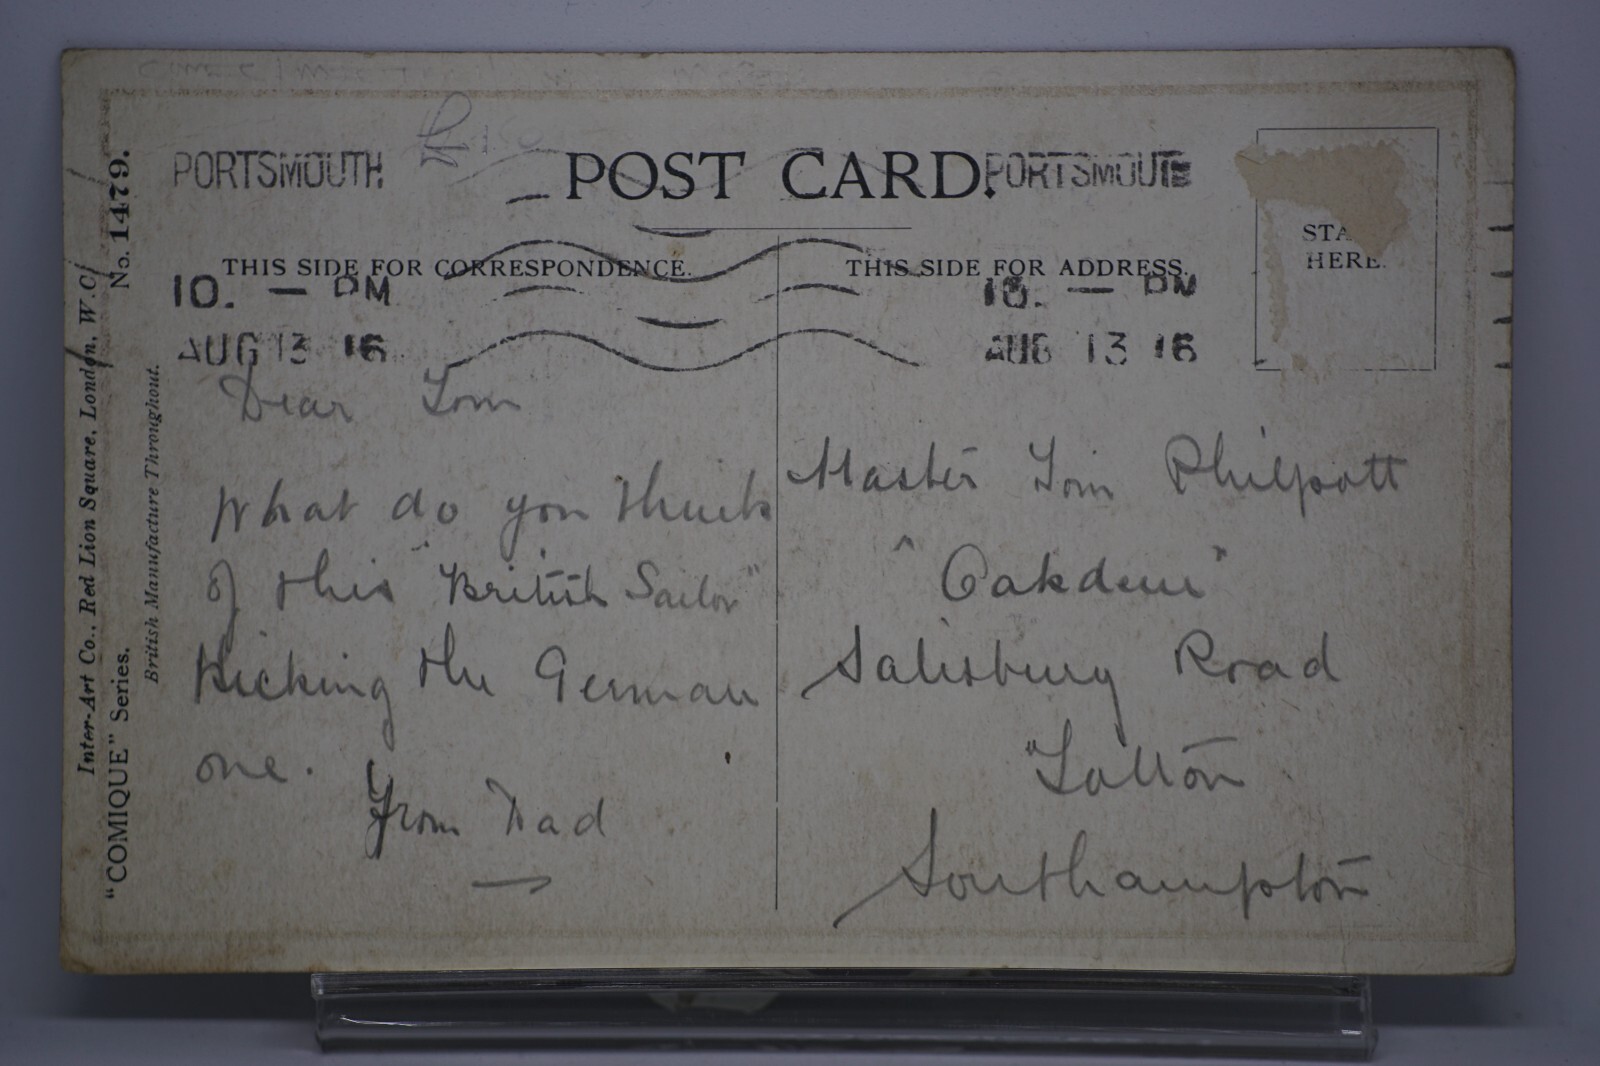 No. 1479.
PORTSMOUTH
POST CARD.
PORTSMOUTH
THIS SIDE FOR CORRESPONDENCE.
THIS SIDE FOR ADDRESS.
STA
HERE.
10. — PM
AUG 13 16
10. — PM
AUG 13 16
Dear Tom
What do you think
of this "British Sailor"
Kicking the German
one.
From Dad
Master Tom Philpott
"Oakdene"
Salisbury Road
Totton
Southampton
Inter-Art Co., Red Lion Square, London, W.C.
"COMIQUE" Series.
British Manufacture Throughout.